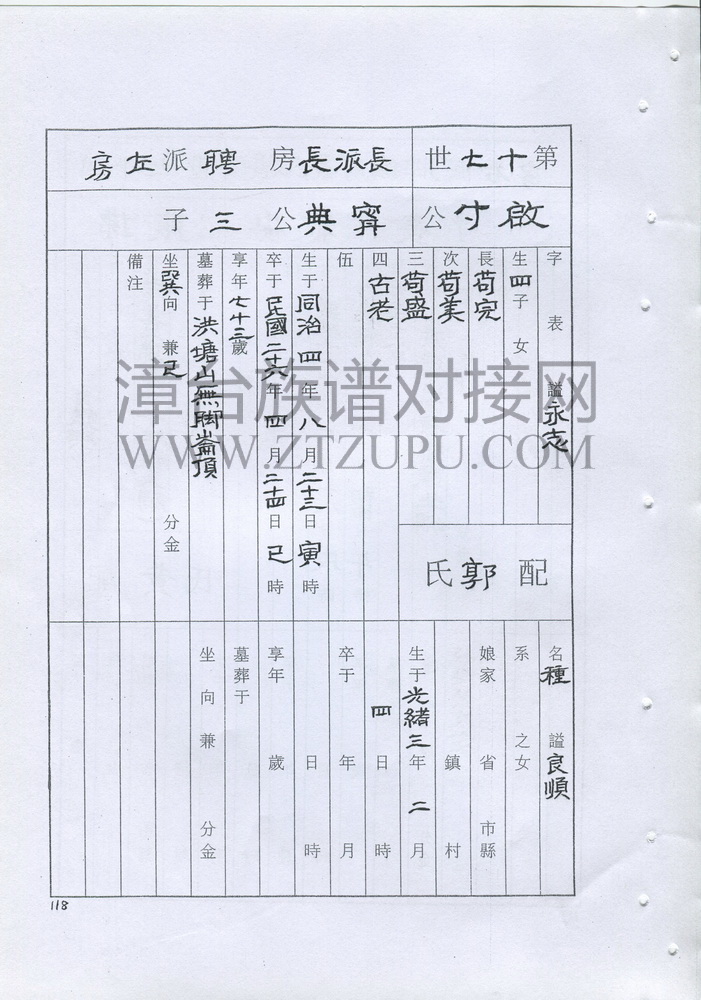 第十七世
長派長房 聘派左房
啟寸公
寗典公三子
字表 諡永志
生四子女
長苟完
次苟美
三苟盛
四古老
伍
生于同治四年八月二十三日寅時
卒于民國二十六年四月二十四日巳時
享年七十三歲
墓葬于洪塘山無脚崙頂
坐巽向 兼巳 分金
備注
配郭氏
名種 諡良順
系 之女
娘家 省 市縣
鎮 村
生于光緒三年二月
四日 時
卒于 年 月
日 時
享年 歲
墓葬于
坐 向 兼 分金
118
漳台族谱对接网
WWW.ZTZUPU.COM